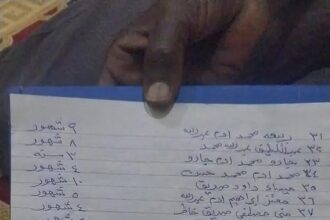 ٣١ ربيعة محمد ادم عبدالله ٩ شهور
٣٢ عبداللطيف عبدالله محمد ٨ شهور
٣٣ جارو محمد ادم جارو ٣ سنة
٣٤ محمد ادم محمد حسن ٤ شهور
٣٥ ميساء داود صديق ١٠ شهور
٣٦ معتز ابراهيم ادم عبدالله ٥ شهور
٣٧ مصطفى صديق خاطر ٤ شهور